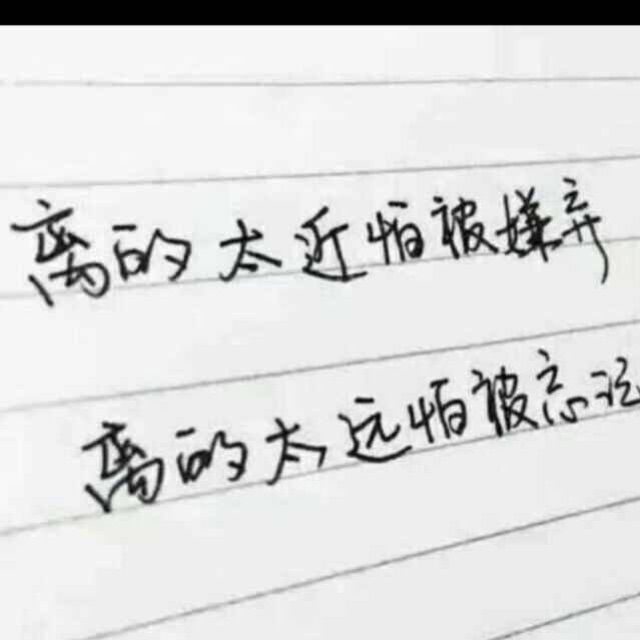 离的太近怕被嫌弃
离的太远怕被忘记